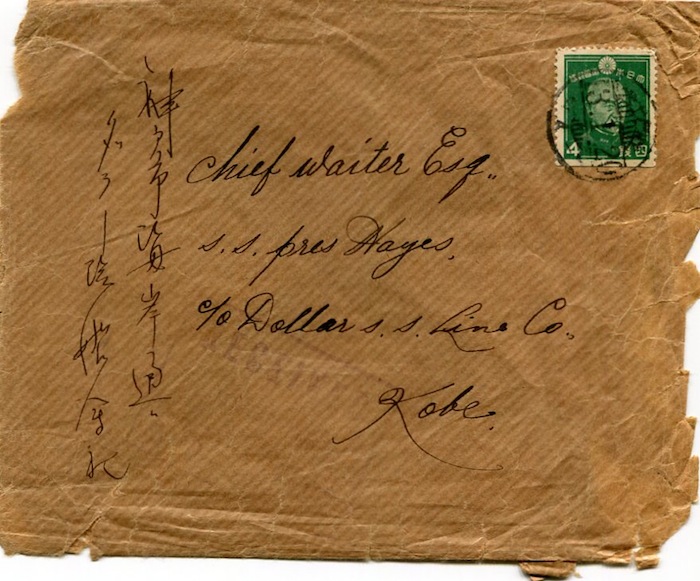 Chief Waiter Esq.,
s.s. pres Hayes,
c/o Dollar s.s. Line Co.,
Kobe.
神戸市海岸通
ダラー汽船会社
4